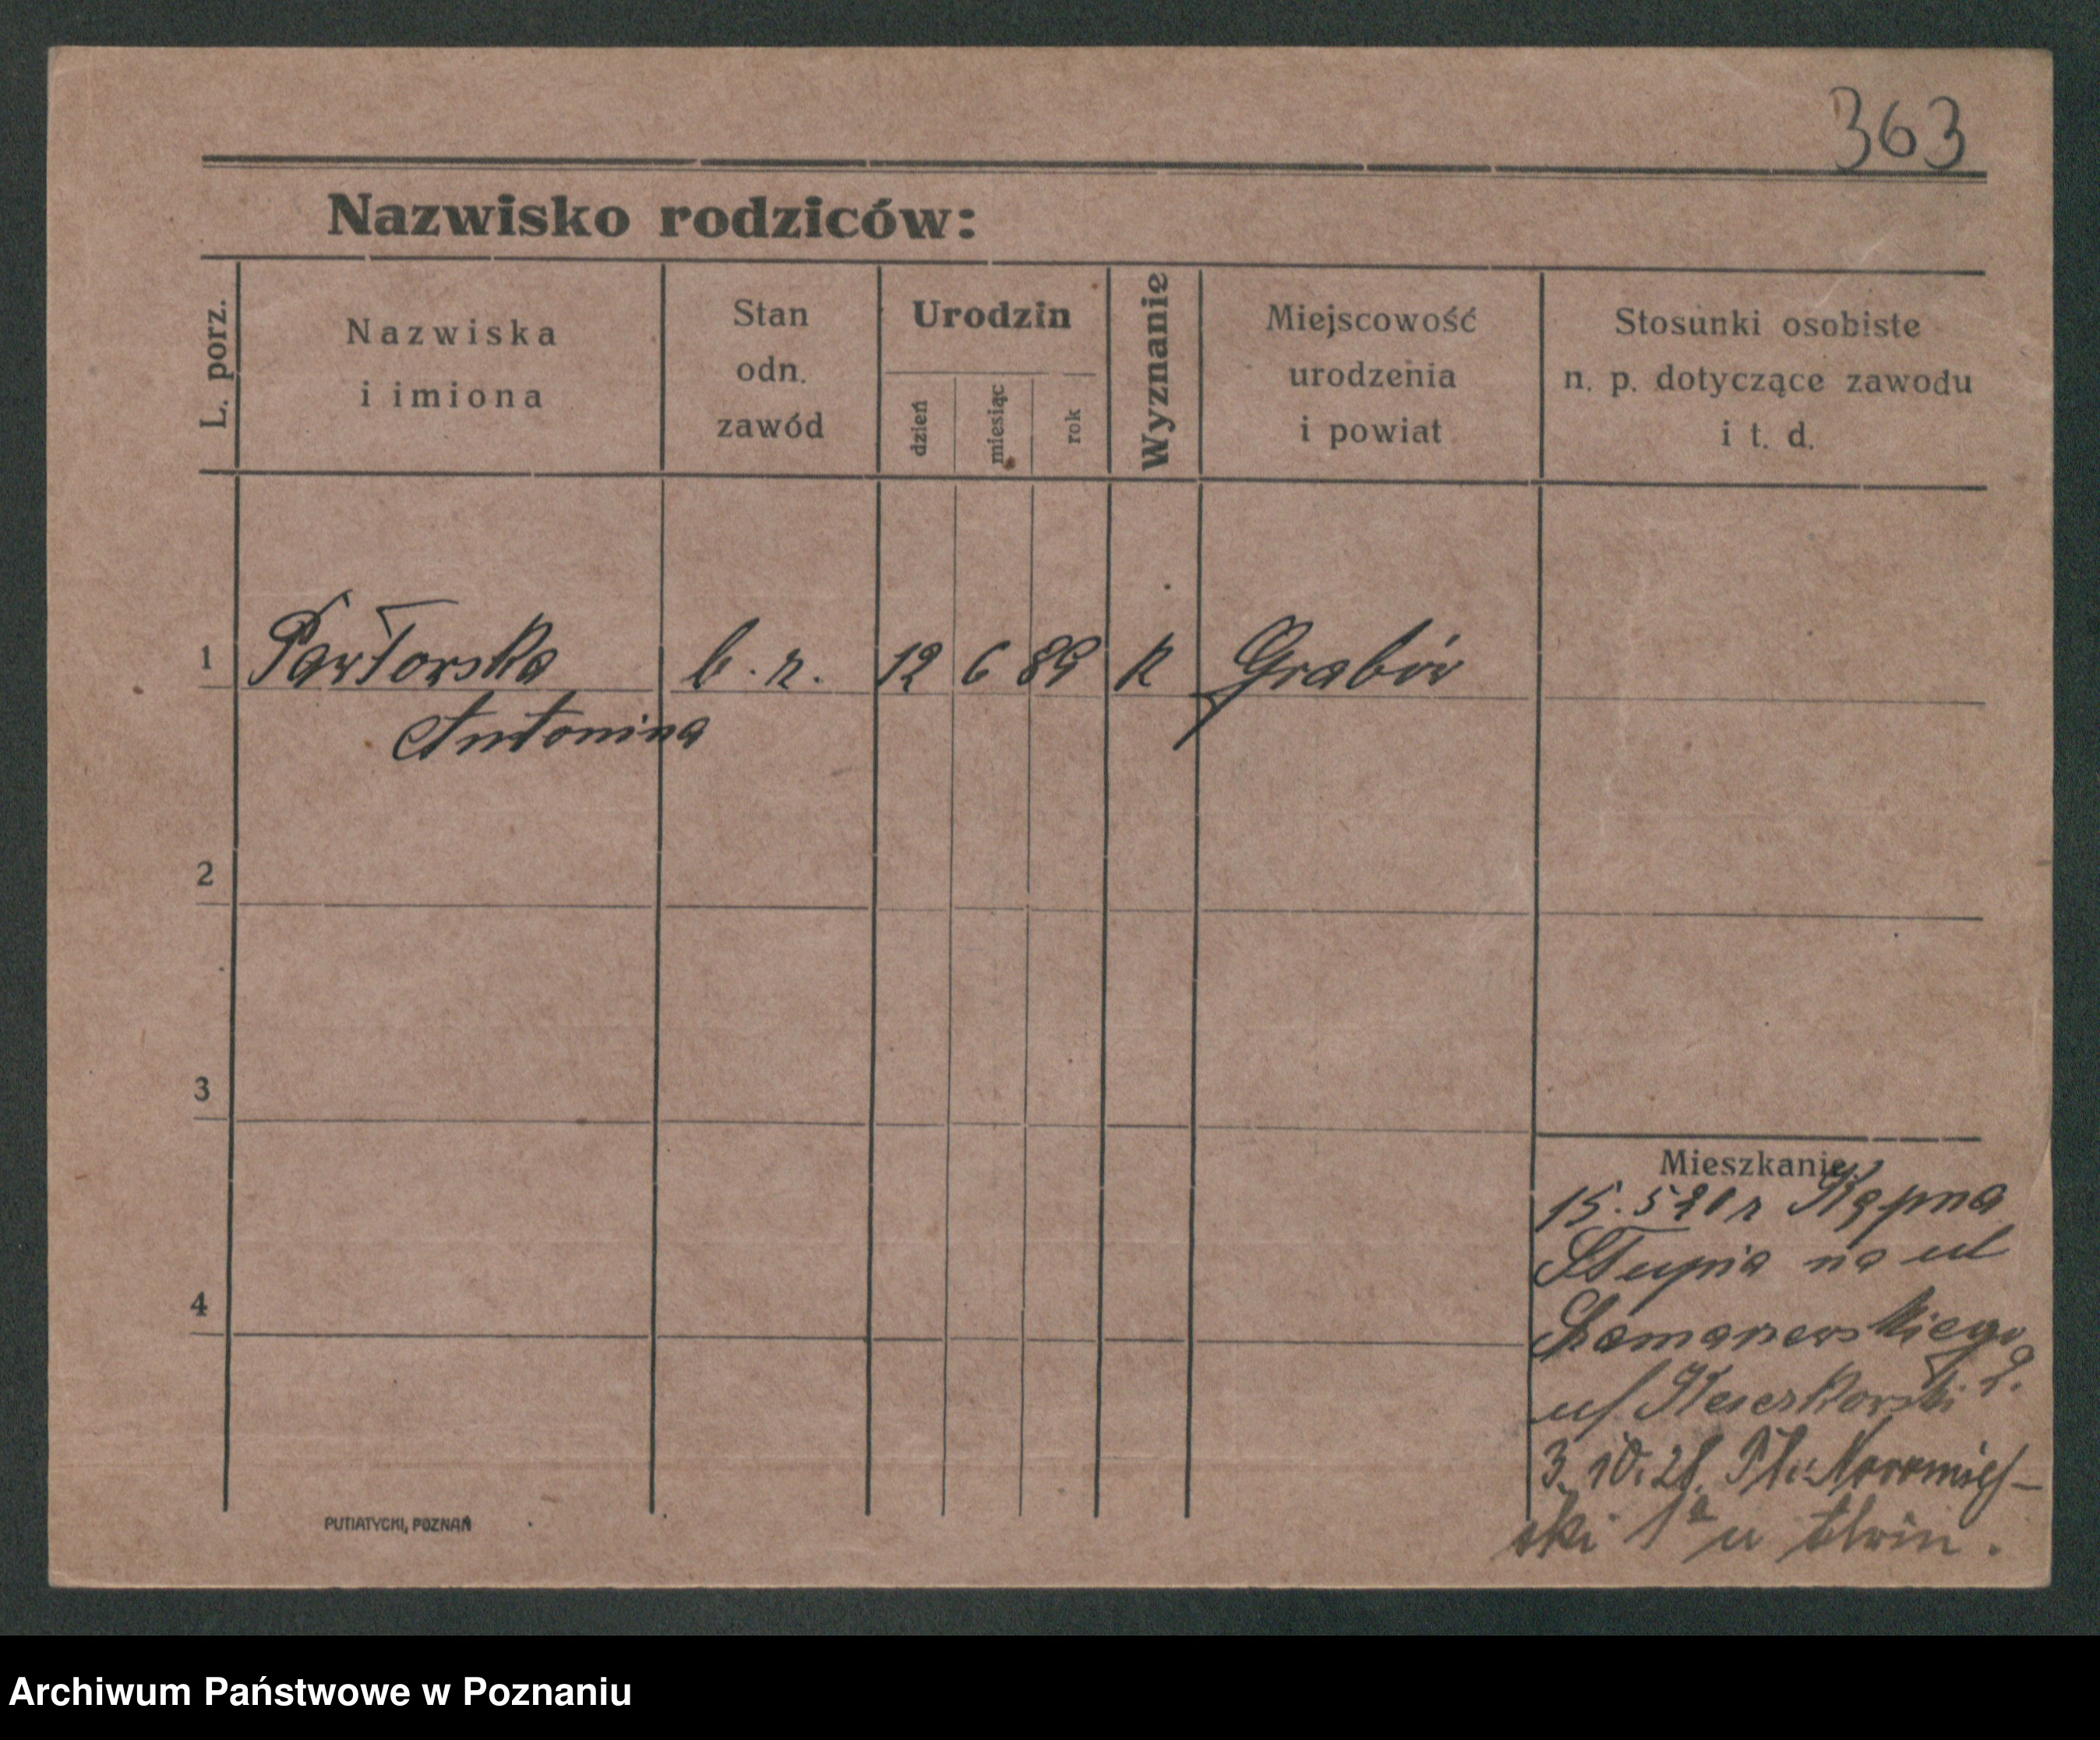 363
Nazwisko rodziców:
L. porz.
Nazwiska
i imiona
Stan
odn.
zawód
Urodzin
dzień
miesiąc
rok
Wyznanie
Miejscowość
urodzenia
i powiat
Stosunki osobiste
n. p. dotyczące zawodu
i t. d.
1 Pawłowska b. z. 12 6 89 k Grabów
Antonina
2
3
4
Mieszkanie
15. 5 z Kępna
Słupia na ul
2.
3. 10. 21. Pl. Nowomiej-
ski 1a u
PUTIATYCKI, POZNAŃ
Archiwum Państwowe w Poznaniu